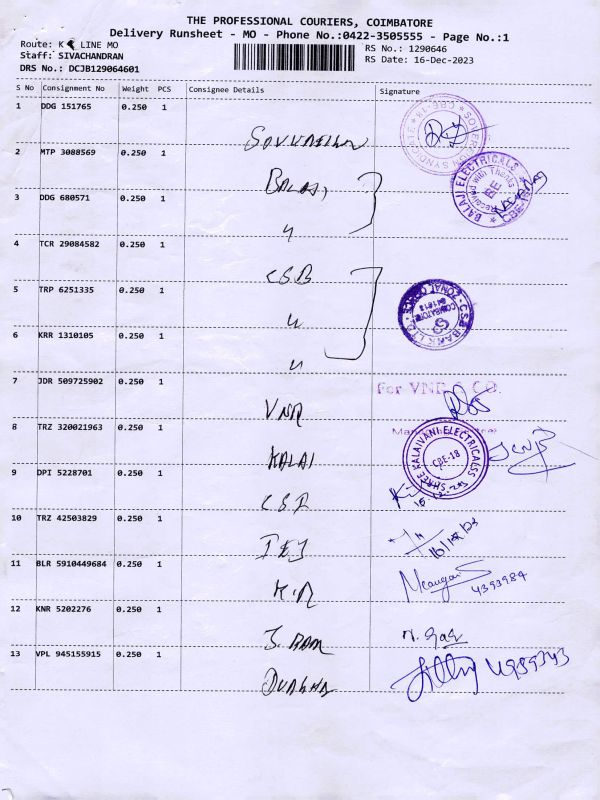 THE PROFESSIONAL COURIERS, COIMBATORE
Delivery Runsheet - MO - Phone No.:0422-3505555 - Page No.:1
Route: K LINE MO
RS No.: 1290646
Staff: SIVACHANDRAN
RS Date: 16-Dec-2023
DRS No.: DCJB129064601
S No Consignment No Weight PCS Consignee Details Signature
1 DDG 151765 0.250 1
2 MTP 3088569 0.250 1
BALAJI
BALAJI ELECTRICALS
Received with Thanks
BE
3 DDG 680571 0.250 1
"
4 TCR 29084582 0.250 1
CSB
5 TRP 6251335 0.250 1
"
C.S.B BANK LTD
COIMBATORE
641018
6 KRR 1310105 0.250 1
"
7 JDR 509725902 0.250 1
For VNR & CO.
VNR
8 TRZ 320021963 0.250 1
KALAI
SHREE KALAIVANI ELECTRICALSS
CBE-18
9 DPI 5228701 0.250 1
CSI
10 TRZ 42503829 0.250 1
16/12/23
11 BLR 5910449684 0.250 1
4393984
K.R
12 KNR 5202276 0.250 1
S. RAM
13 VPL 945155915 0.250 1
DURGHA